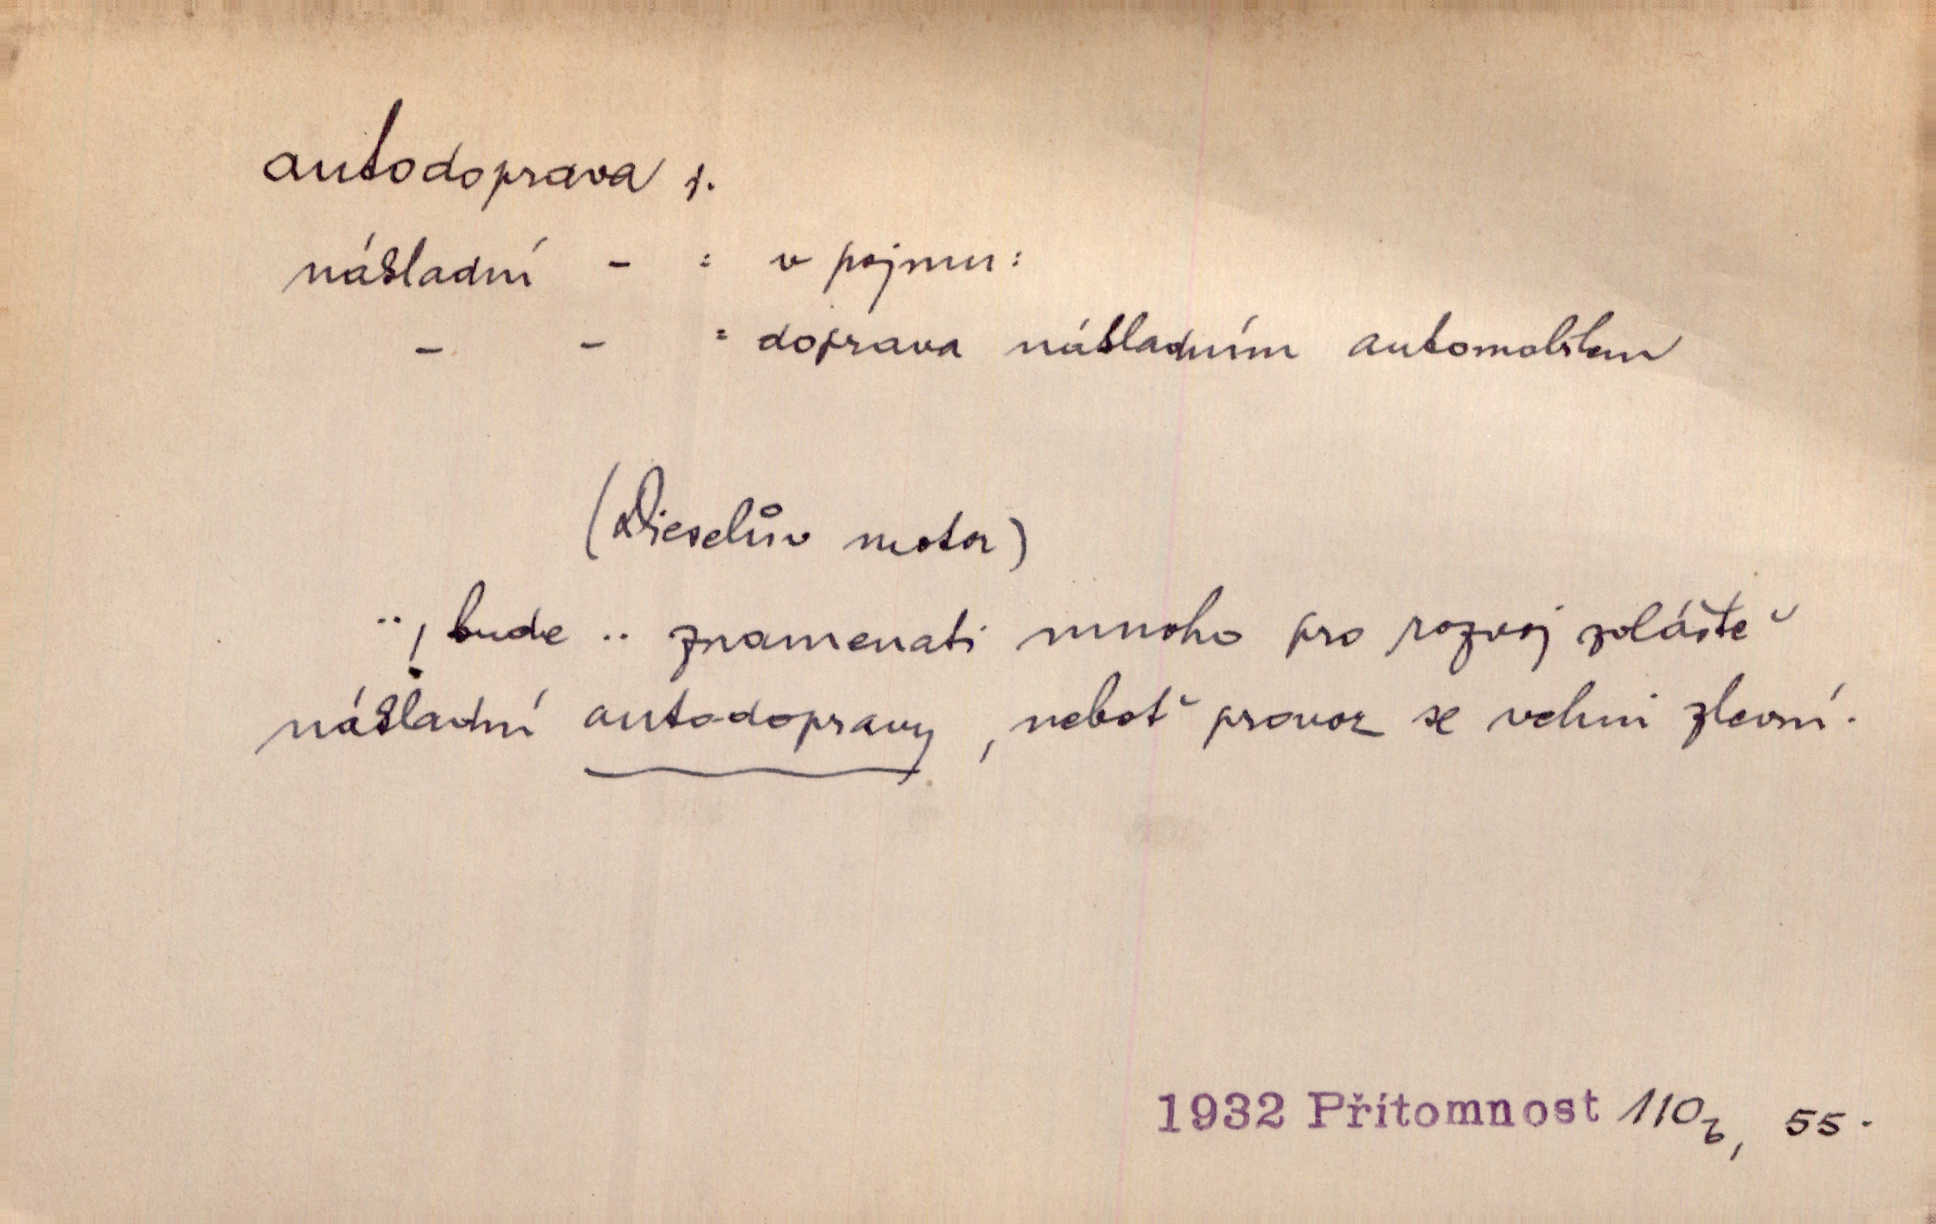 autodoprava s.
nákladní - : v pojmu:
- - : doprava nákladním automobilem
(Dieselův motor)
.. , bude .. znamenati mnoho pro rozvoj zvláště
nákladní autodopravy , neboť provoz se velmi zlevní .
1932 Přítomnost 110b, 55 .